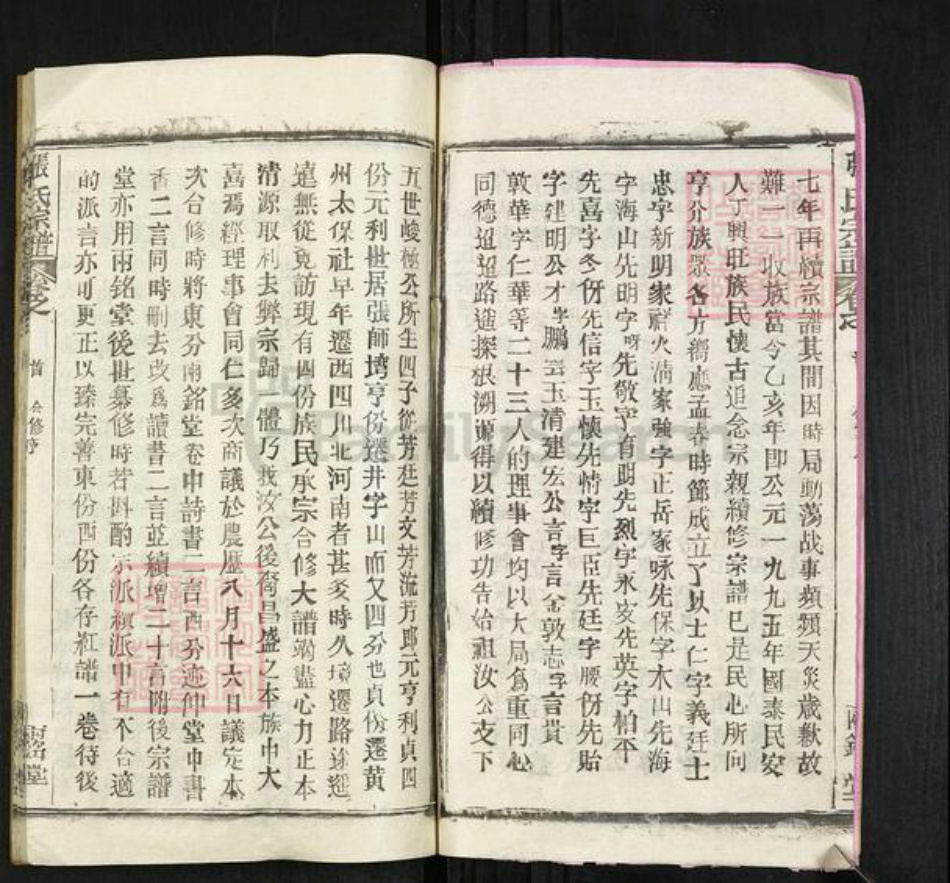 七年再續宗譜其間因時局動蕩战事頻頻天災歳歉故
難一一收族當今乙亥年即公元一九九五年國泰民安
人丁興旺族民懷古追念宗親續修宗譜已是民心所向
亨分族眾各方嚮應孟春時節成立了以士仁字義廷士
忠字新明家祥火清家強字正岳家咏先保字木山先海
字海山先明字 先敬字有明先烈字永安先英字柏平
先喜字冬份先信字玉懷先情字巨臣先廷字腰份先貽
字建明公才字鵬雲玉清建宏公言字言金敦志字言貴
敦華字仁華等二十三人的理事會均以大局為重同心
同德迢迢路遥探根溯源得以續修功告始祖汝公支下
張氏宗譜
兩銘堂
五世峻極公所生四子從芳廷芳文芳流芳即元亨利貞四
份元利世居張師塆亨份遷井字山而又四分也貞份遷黄
州太保社早年遷西四川北河南者甚多時久境遷路途遥
遠無從覓訪現有四份族民承宗合修大譜竭盡心力正本
清源取利去弊宗歸一體乃我汝公後裔昌盛之本族中大
喜焉經理事會同仁多次商議於農歷八月十六日議定本
次合修時將東分兩銘堂卷中詩書二言西分迹仲堂中書
香二言同時刪去改為讀書二言並續增二十言附後宗譜
堂亦用兩銘堂後世纂修時若斟酌宗派續派中有不合適
的派言亦可更正以臻完善東份西份各存紅譜一卷待後
張氏宗譜 卷之
首 合修序
兩銘堂
FamilySearch